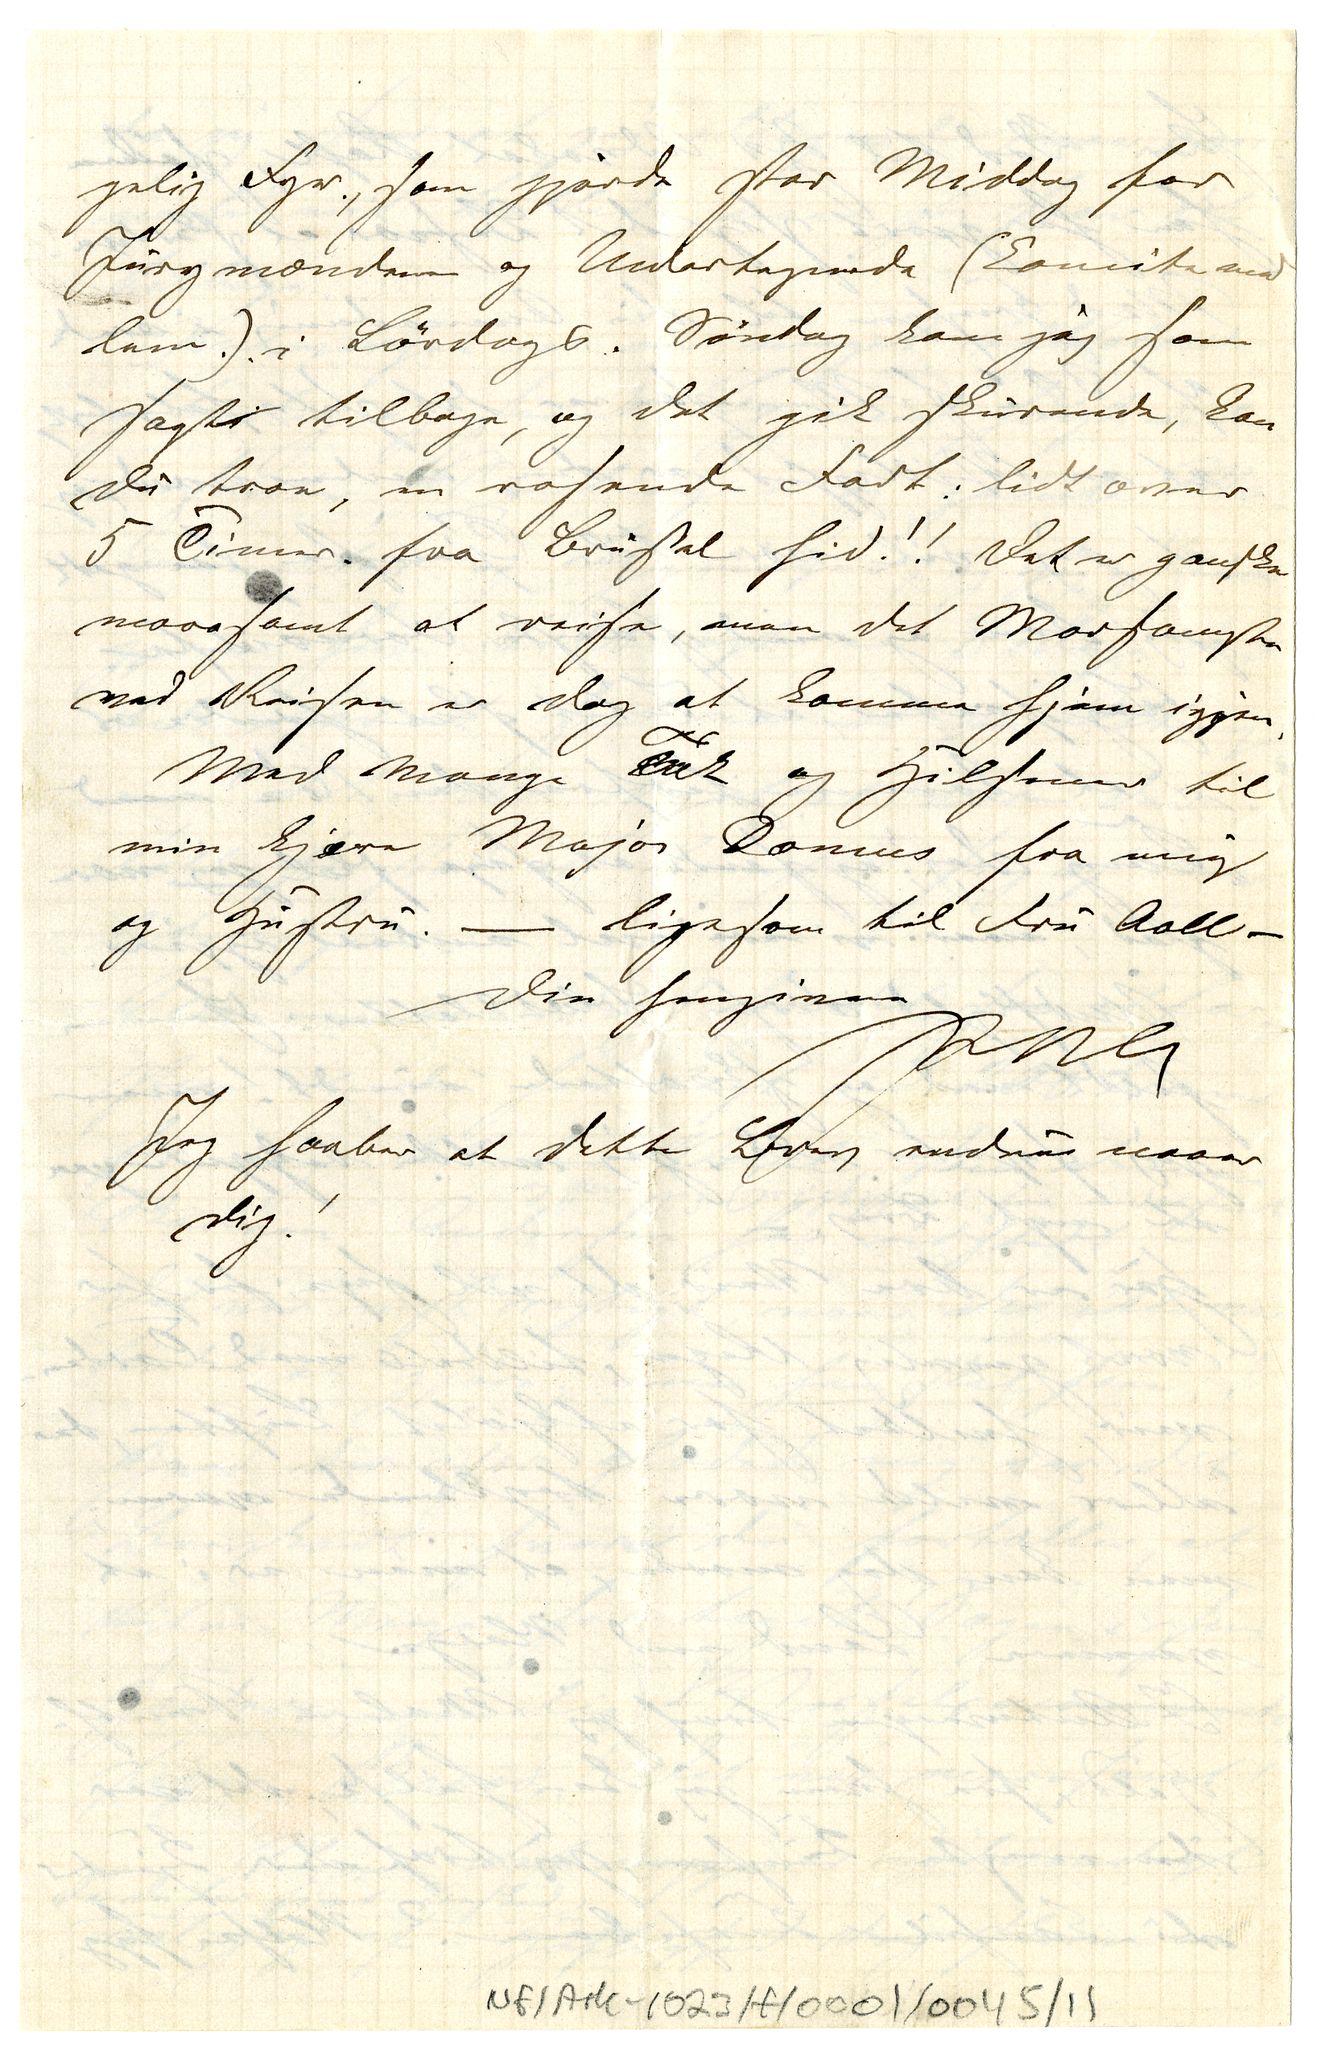 gelig Fyr., som gjorde stor Middag for
Jürymændene og Undertegnede (Komitemed
lem). i Lördags. Söndag kom jeg som
sagt tilbage, og det gik skürende, kan
Dü troe, en rasende Fart: lidt over
5 Timer. fra Brüssel hid!! Det er ganske
morosomt at reise, men det Morsomste
ved Reisen er dog at komme hjem igjen.
Med mange Tak og Hilsener til
min kjære Major Domus fra mig
og Hüstrü. — ligesom til Frü Aall —
Din hengivne
Jeg haaber at dette Brev endnü naaer
dig!
NF/Ark-1023/F/0001/0045/11